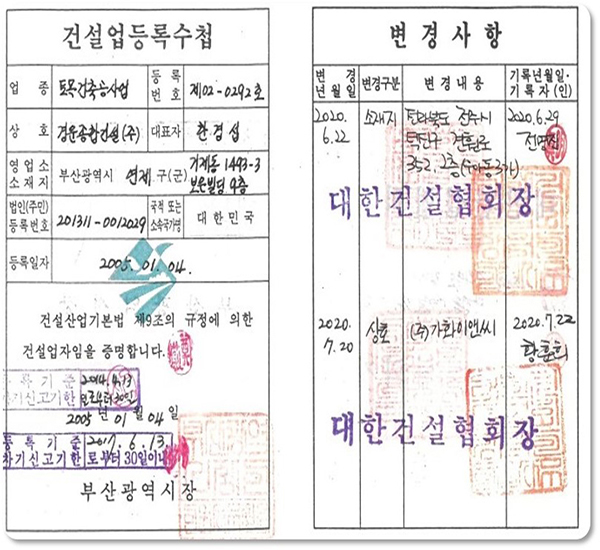 건설업등록수첩
업 종 토목건축공사업 등 록 번 호 제02-0292호
상 호 경윤종합건설(주) 대표자 한경섭
영업소 소재지 부산광역시 연제 구(군) 거제동 1493-3
보윤빌딩 4층
법인(주민) 등록번호 201311-0012029 국적 또는 소속국가명 대한민국
등록일자 2005. 01. 04.
건설산업기본법 제9조의 규정에 의한
건설업자임을 증명합니다.
등록기준 2014.4.13
기신고기한 로부터 30일
2005 년 01 월 04 일
등록기준 2017. 6. 13.
기신고기한 로부터 30일이내
부산광역시장
변경사항
변 경 년월일 변경구분 변경내용 기록년월일· 기록자(인)
2020. 소재지 전라북도 전주시 2020.6.29
6.22 덕진구
352, 2층
대한건설협회장
2020. 상호 (주)가화이앤씨 2020.7.22
7.20
대한건설협회장